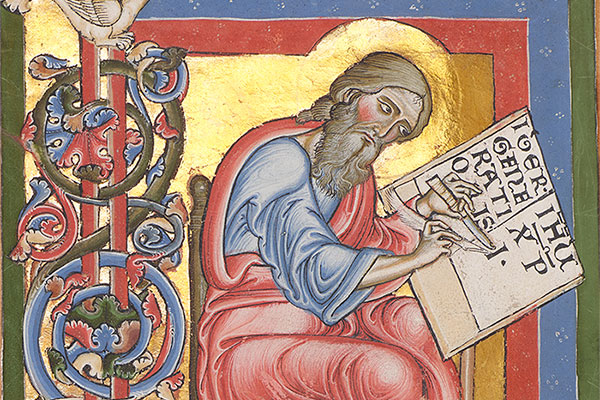 LIBER
GENE
RATI
O IS
IHU
XP
I.